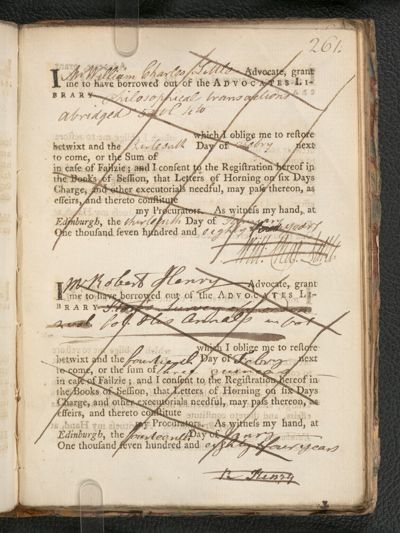 261.
I Mr William Charles Little Advocate, grant
me to have borrowed out of the ADVOCATES LI-
BRARY Philosophical transactions
abridged
which I oblige me to restore
betwixt and the thirteenth Day of Febry next
to come, or the Sum of
in case of Failzie; and I consent to the Registration hereof in
the Books of Session, that Letters of Horning on six Days
Charge, and other executorials needful, may pass thereon, as
effeirs, and thereto constitute
my Procurators. As witness my hand, at
Edinburgh, the thirteenth Day of Janury
One thousand seven hundred and eighty four years
Will: Chas: Little
I Mr Robert Henry Advocate, grant
me to have borrowed out of the ADVOCATES LI-
BRARY
and
which I oblige me to restore
betwixt and the fourteenth Day of Febry next
to come, or the sum of
in case of Failzie; and I consent to the Registration hereof in
the Books of Session, that Letters of Horning on six Days
Charge, and other executorials needful, may pass thereon, as
effeirs, and thereto constitute
my Procurators. As witness my hand, at
Edinburgh, the fourteenth Day of Janry
One thousand seven hundred and eighty four years
R Henry